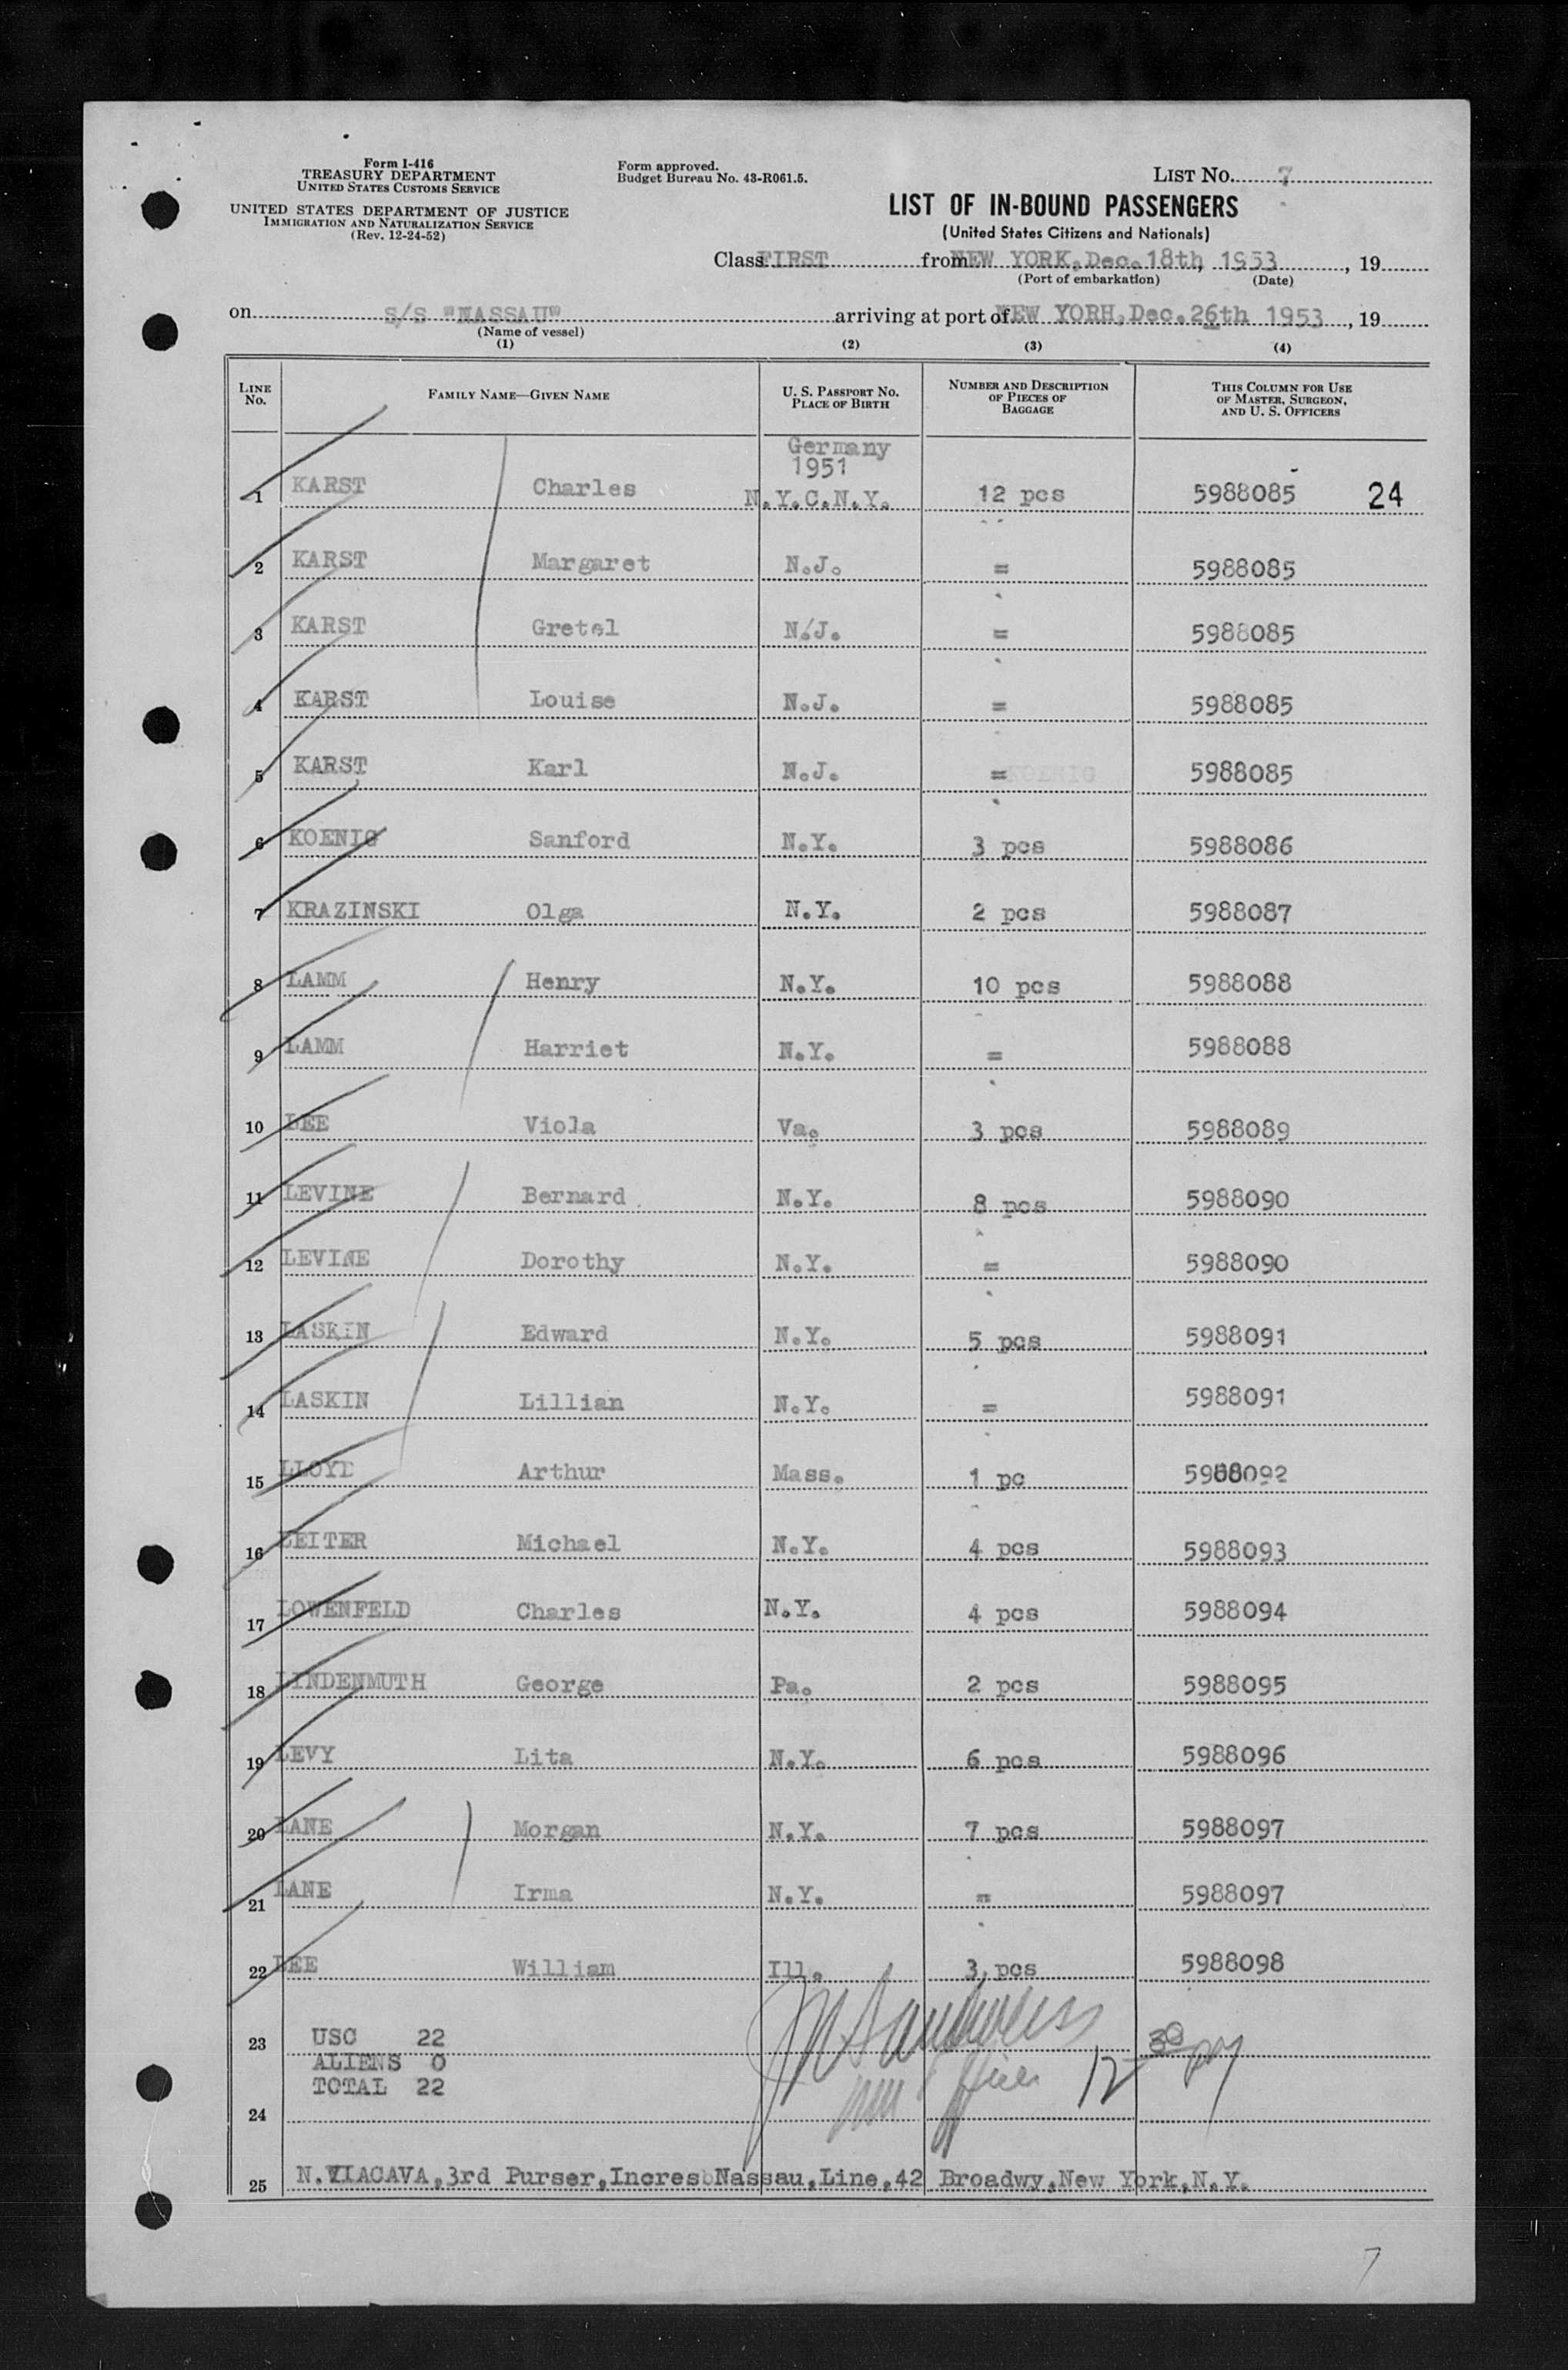 Form I-416
TREASURY DEPARTMENT
UNITED STATES CUSTOMS SERVICE
UNITED STATES DEPARTMENT OF JUSTICE
IMMIGRATION AND NATURALIZATION SERVICE
(Rev. 12-24-52)
Form approved.
Budget Bureau No. 43-R061.5.
LIST No. 7
LIST OF IN-BOUND PASSENGERS
(United States Citizens and Nationals)
Class FIRST from NEW YORK, Dec. 18th, 1953, 19
(Port of embarkation) (Date)
on S/S "NASSAU" arriving at port of NEW YORH, Dec. 26th 1953, 19
(Name of vessel)
(1) (2) (3) (4)
LINE No. FAMILY NAME—GIVEN NAME U. S. PASSPORT No. PLACE OF BIRTH NUMBER AND DESCRIPTION OF PIECES OF BAGGAGE THIS COLUMN FOR USE OF MASTER, SURGEON, AND U. S. OFFICERS
Germany
1951
1 KARST Charles N.Y.C.N.Y. 12 pcs 5988085 24
2 KARST Margaret N.J. = 5988085
3 KARST Gretel N.J. = 5988085
4 KARST Louise N.J. = 5988085
5 KARST Karl N.J. = KOENIG 5988085
6 KOENIG Sanford N.Y. 3 pcs 5988086
7 KRAZINSKI Olga N.Y. 2 pcs 5988087
8 LAMM Henry N.Y. 10 pcs 5988088
9 LAMM Harriet N.Y. = 5988088
10 LEE Viola Va. 3 pcs 5988089
11 LEVINE Bernard N.Y. 8 pcs 5988090
12 LEVINE Dorothy N.Y. = 5988090
13 LASKIN Edward N.Y. 5 pcs 5988091
14 LASKIN Lillian N.Y. = 5988091
15 LLOYD Arthur Mass. 1 pc 5988092
16 LEITER Michael N.Y. 4 pcs 5988093
17 LOWENFELD Charles N.Y. 4 pcs 5988094
18 LINDENMUTH George Pa. 2 pcs 5988095
19 LEVY Lita N.Y. 6 pcs 5988096
20 LANE Morgan N.Y. 7 pcs 5988097
21 LANE Irma N.Y. = 5988097
22 LEE William Ill. 3 pcs 5988098
23 USC 22
ALIENS 0
TOTAL 22
12 30 pm
24
25 N. VIACAVA, 3rd Purser, Incres Nassau, Line, 42 Broadwy, New York, N.Y.
7